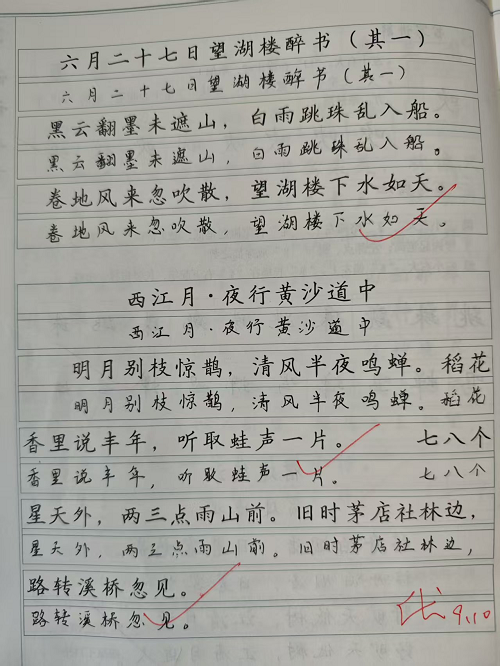 六月二十七日望湖楼醉书（其一）
六月二十七日望湖楼醉书（其一）
黑云翻墨未遮山，白雨跳珠乱入船。
黑云翻墨未遮山，白雨跳珠乱入船。
卷地风来忽吹散，望湖楼下水如天。
卷地风来忽吹散，望湖楼下水如天。
西江月·夜行黄沙道中
西江月·夜行黄沙道中
明月别枝惊鹊，清风半夜鸣蝉。稻花
明月别枝惊鹊，清风半夜鸣蝉。稻花
香里说丰年，听取蛙声一片。 七八个
香里说丰年，听取蛙声一片。 七八个
星天外，两三点雨山前。旧时茅店社林边，
星天外，两三点雨山前。旧时茅店社林边，
路转溪桥忽见。
路转溪桥忽见。
优 9.10